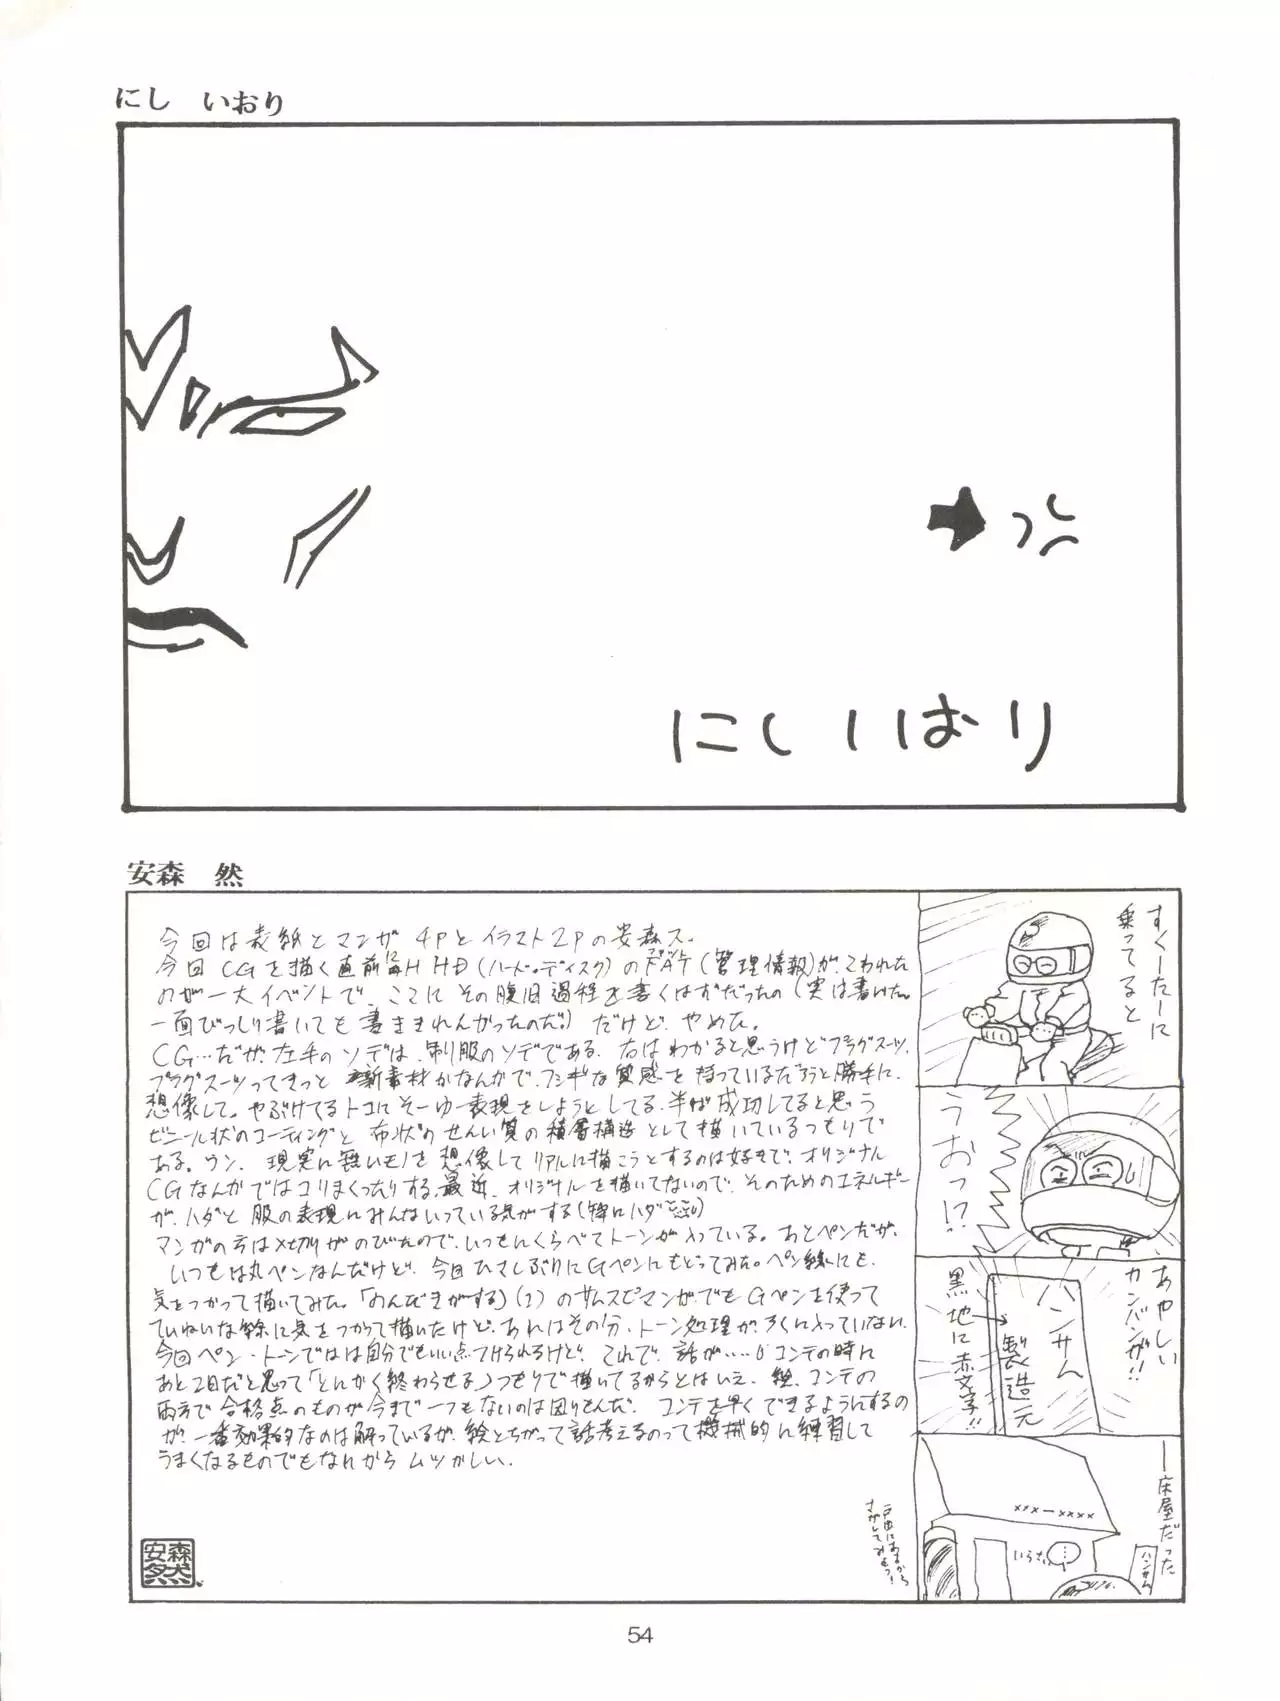 にし いおり
にしいおり
安森 然
今回は表紙とマンガ4Pとイラスト2Pの安森ス。
今回CGを描く直前にHD(ハード・ディスク)のFAT(管理情報)がこわれた
のが一大イベントで、ここにその復旧過程を書くはずだったの(実は書いた。
一面びっしり書いても書ききれんかったのだ。)だけど、やめた。
CG…だが、左手のソデは、制服のソデである。右はわかると思うけどプラグスーツ。
プラグスーツってきっと新素材かなんかで、フシギな質感を持っているだろうと勝手に
想像して。やぶけてるトコにそーゆー表現をしようとしてる。半ば成功してると思う
ビニール状のコーティングと布状のせんい質の積層構造として描いているつもりで
ある。ウン、現実に無いモノを想像してリアルに描こうとするのは好きで、オリジナル
CGなんかではコリまくったりする。最近、オリジナルを描いてないので、そのためのエネルギー
が、ハダと服の表現にみんないっている気がする(特にハダ)
マンガの方は〆切りがのびたので、いつもにくらべてトーンが入っている。あとペンだが、
いつもは丸ペンなんだけど、今回ひさしぶりにGペンにもどってみた。ペン線にも、
気をつかって描いてみた。「のんびきがする」(1)のサムスピマンガでもGペンを使って
ていねいな線に気をつかって描いたけど、あれはその分、トーン処理がろくに入っていない。
今回ペン・トーンでは自分でもいい点つけられるけど、これで、話が……。コンテの時に
あと2日だと思って「とにかく終わらせる」つもりで描いてるからとはいえ、絵、コンテの
両方で合格点のものが今まで一つもないのは困りもんだ。コンテを早くできるようにするの
が、一番効果的なのは解っているが、絵とちがって話考えるのって機械的に練習して
うまくなるものでもないから ムツかしい。
安森然
すくーたーに
乗ってると
うおっ!?
あやしい
カンバンが!!
ハンサム
製造元
黒地に赤文字!!
―床屋だった
×××ー××××
ハンサム
いらさい
…
戸田にあるから
さがしてみよう!
54